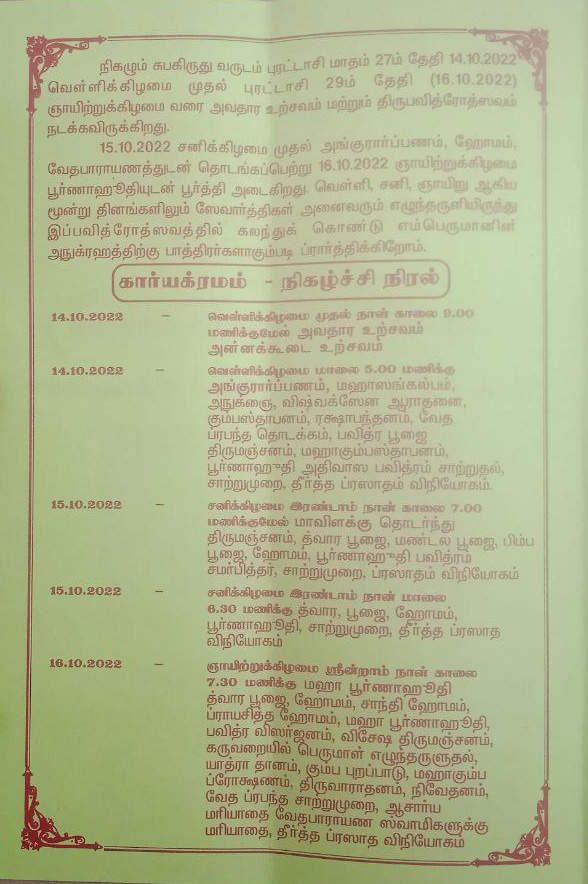 நிகழும் சுபகிருது வருடம் புரட்டாசி மாதம் 27ம் தேதி 14.10.2022
வெள்ளிக்கிழமை முதல் புரட்டாசி 29ம் தேதி (16.10.2022)
ஞாயிற்றுக்கிழமை வரை அவதார உற்சவம் மற்றும் திருபவித்ரோத்ஸவம்
நடக்கவிருக்கிறது.
15.10.2022 சனிக்கிழமை முதல் அங்குரார்ப்பணம், ஹோமம்,
வேதபாராயணத்துடன் தொடங்கப்பெற்று 16.10.2022 ஞாயிற்றுக்கிழமை
பூர்ணாஹூதியுடன் பூர்த்தி அடைகிறது. வெள்ளி, சனி, ஞாயிறு ஆகிய
மூன்று தினங்களிலும் ஸேவார்த்திகள் அனைவரும் எழுந்தருளியிருந்து
இப்பவித்ரோத்ஸவத்தில் கலந்துக் கொண்டு எம்பெருமானின்
அநுக்ரஹத்திற்கு பாத்திரர்களாகும்படி ப்ரார்த்திக்கிறோம்.
கார்யக்ரமம் - நிகழ்ச்சி நிரல்
14.10.2022 – வெள்ளிக்கிழமை முதல் நாள் காலை 9.00
மணிக்குமேல் அவதார உற்சவம்
அன்னக்கூடை உற்சவம்
14.10.2022 – வெள்ளிக்கிழமை மாலை 5.00 மணிக்கு
அங்குரார்ப்பணம், மஹாஸங்கல்பம்,
அநுக்ஞை, விஷ்வக்ஸேன ஆராதனை,
கும்பஸ்தாபனம், ரக்ஷாபந்தனம், வேத
ப்ரபந்த தொடக்கம், பவித்ர பூஜை
திருமஞ்சனம், மஹாகும்பஸ்தாபனம்,
பூர்ணாஹுதி அதிவாஸ பவித்ரம் சாற்றுதல்,
சாற்றுமுறை, தீர்த்த ப்ரஸாதம் விநியோகம்.
15.10.2022 – சனிக்கிழமை இரண்டாம் நாள் காலை 7.00
மணிக்குமேல் மாவிளக்கு தொடர்ந்து
திருமஞ்சனம், த்வார பூஜை, மண்டல பூஜை, பிம்ப
பூஜை, ஹோமம், பூர்ணாஹுதி பவித்ரம்
சமர்பித்தர், சாற்றுமுறை, ப்ரஸாதம் விநியோகம்
15.10.2022 – சனிக்கிழமை இரண்டாம் நாள் மாலை
6.30 மணிக்கு த்வார, பூஜை, ஹோமம்,
பூர்ணாஹூதி, சாற்றுமுறை, தீர்த்த ப்ரஸாத
விநியோகம்
16.10.2022 – ஞாயிற்றுக்கிழமை நாள் காலை
7.30 மணிக்கு மஹா பூர்ணாஹூதி
த்வார பூஜை, ஹோமம், சாந்தி ஹோமம்,
ப்ராயசித்த ஹோமம், மஹா பூர்ணாஹூதி,
பவித்ர விஸர்ஜனம், விசேஷ திருமஞ்சனம்,
கருவறையில் பெருமாள் எழுந்தருளுதல்,
யாத்ரா தானம், கும்ப புறப்பாடு, மஹாகும்ப
ப்ரோக்ஷணம், திருவாராதனம், நிவேதனம்,
வேத ப்ரபந்த சாற்றுமுறை, ஆசார்ய
மரியாதை வேதபாராயண ஸ்வாமிகளுக்கு
மரியாதை, தீர்த்த ப்ரஸாத விநியோகம்